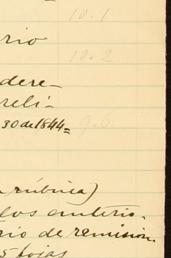 10.1
rio
10.2
dere-
reli-
30 de 1844=
9.6
rúbrica)
los anterio-
rio de remision.
5 fojas